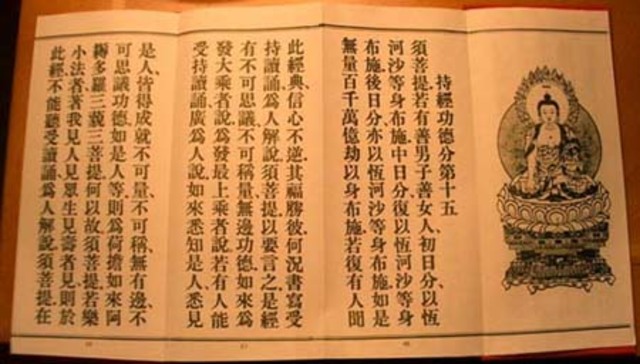 持經功德分第十五
須菩提若有善男子善女人、初日分以恆
河沙等身布施、中日分復以恆河沙等身
布施、後日分亦以恆河沙等身布施如是
無量百千萬億劫以身布施若復有人聞
此經典、信心不逆其福勝彼何況書寫受
持讀誦爲人解說須菩提以要言之是經
有不可思議不可稱量無邊功德如來爲
發大乘者說爲發最上乘者說若有人能
受持讀誦廣爲人說如來悉知是人、悉見
是人、皆得成就不可量、不可稱、無有邊、不
可思議功德如是人等、則爲荷擔如來阿
耨多羅三藐三菩提何以故須菩提若樂
小法者著我見人見眾生見壽者見、則於
此經、不能聽受讀誦爲人解說須菩提在